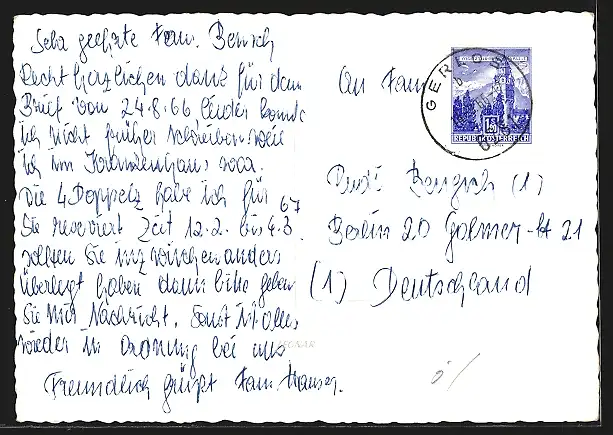 Sehr geehrte Fam. Bensch
Recht herzlichen dank für den
Brief von 24.8.66 leider konnte
ich nicht früher schreiben weil
ich im Krankenhaus war.
Die 4 Doppelz habe ich für
Sie reserviert Zeit 12.2. bis 4.3. 67
sollten Sie inzwischen anders
überlegt haben dann bitte geben
Sie mir Nachricht. Sonst ist alles
wieder in Ordnung bei uns
Freundlich grüßt Fam.
An Fam
GER
REPUBLIK ÖSTERREICH
(1)
Berlin 20 21
(1) Deutschland